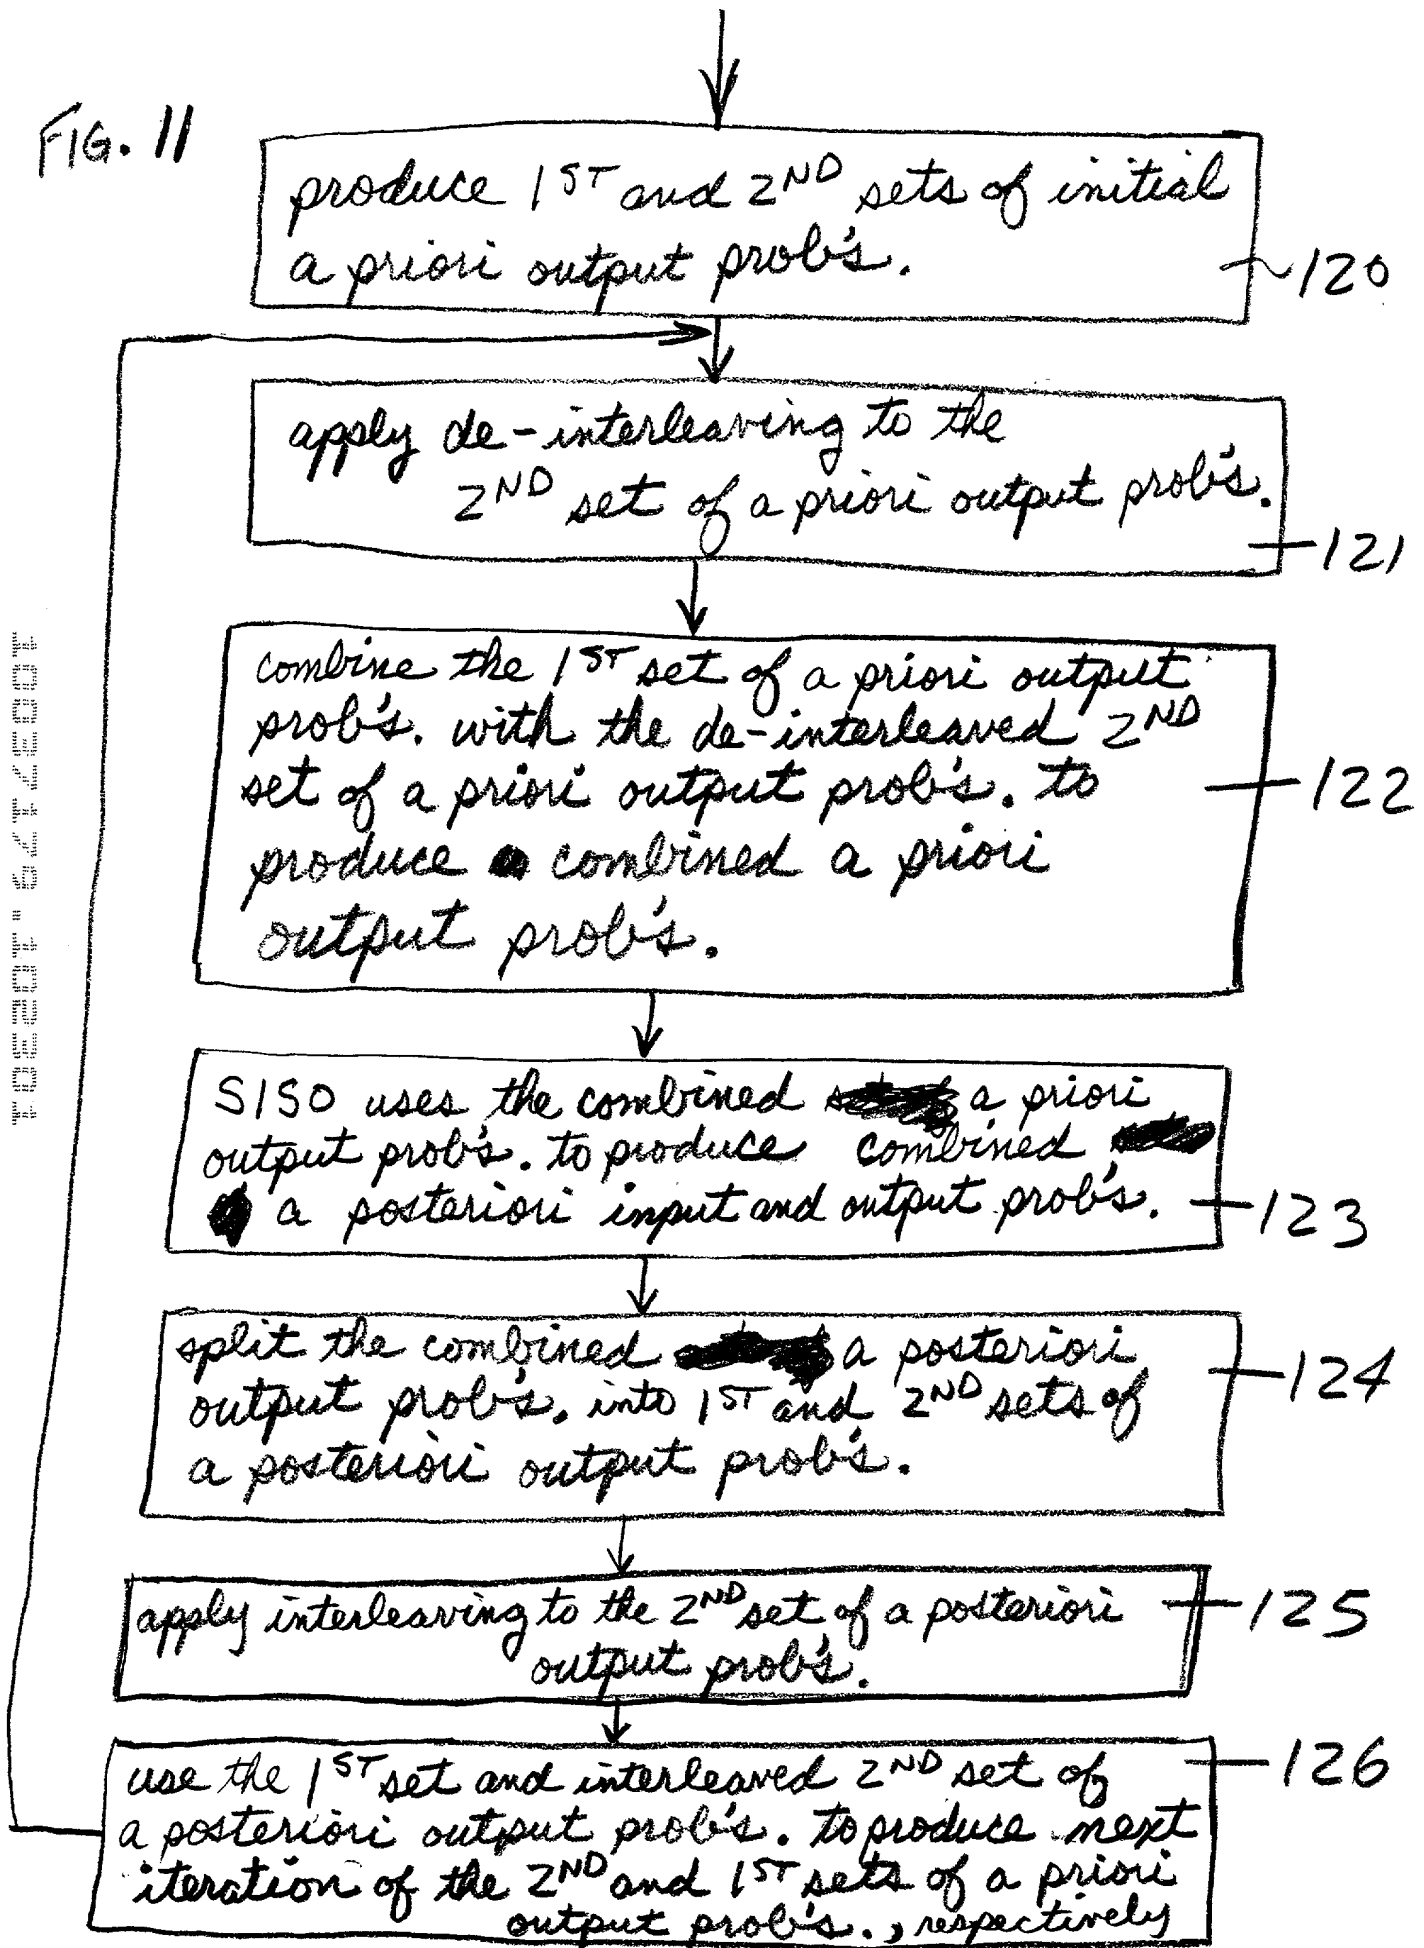 FIG. 11
produce 1ST and 2ND sets of initial
a priori output prob's.
120
apply de-interleaving to the
2ND set of a priori output prob's.
121
combine the 1ST set of a priori output
prob's. with the de-interleaved 2ND
set of a priori output prob's. to
produce combined a priori
output prob's.
122
SISO uses the combined a priori
output prob's. to produce combined
a posteriori input and output prob's.
123
split the combined a posteriori
output prob's. into 1ST and 2ND sets of
a posteriori output prob's.
124
apply interleaving to the 2ND set of a posteriori
output prob's.
125
use the 1ST set and interleaved 2ND set of
a posteriori output prob's. to produce next
iteration of the 2ND and 1ST sets of a priori
output prob's., respectively
126